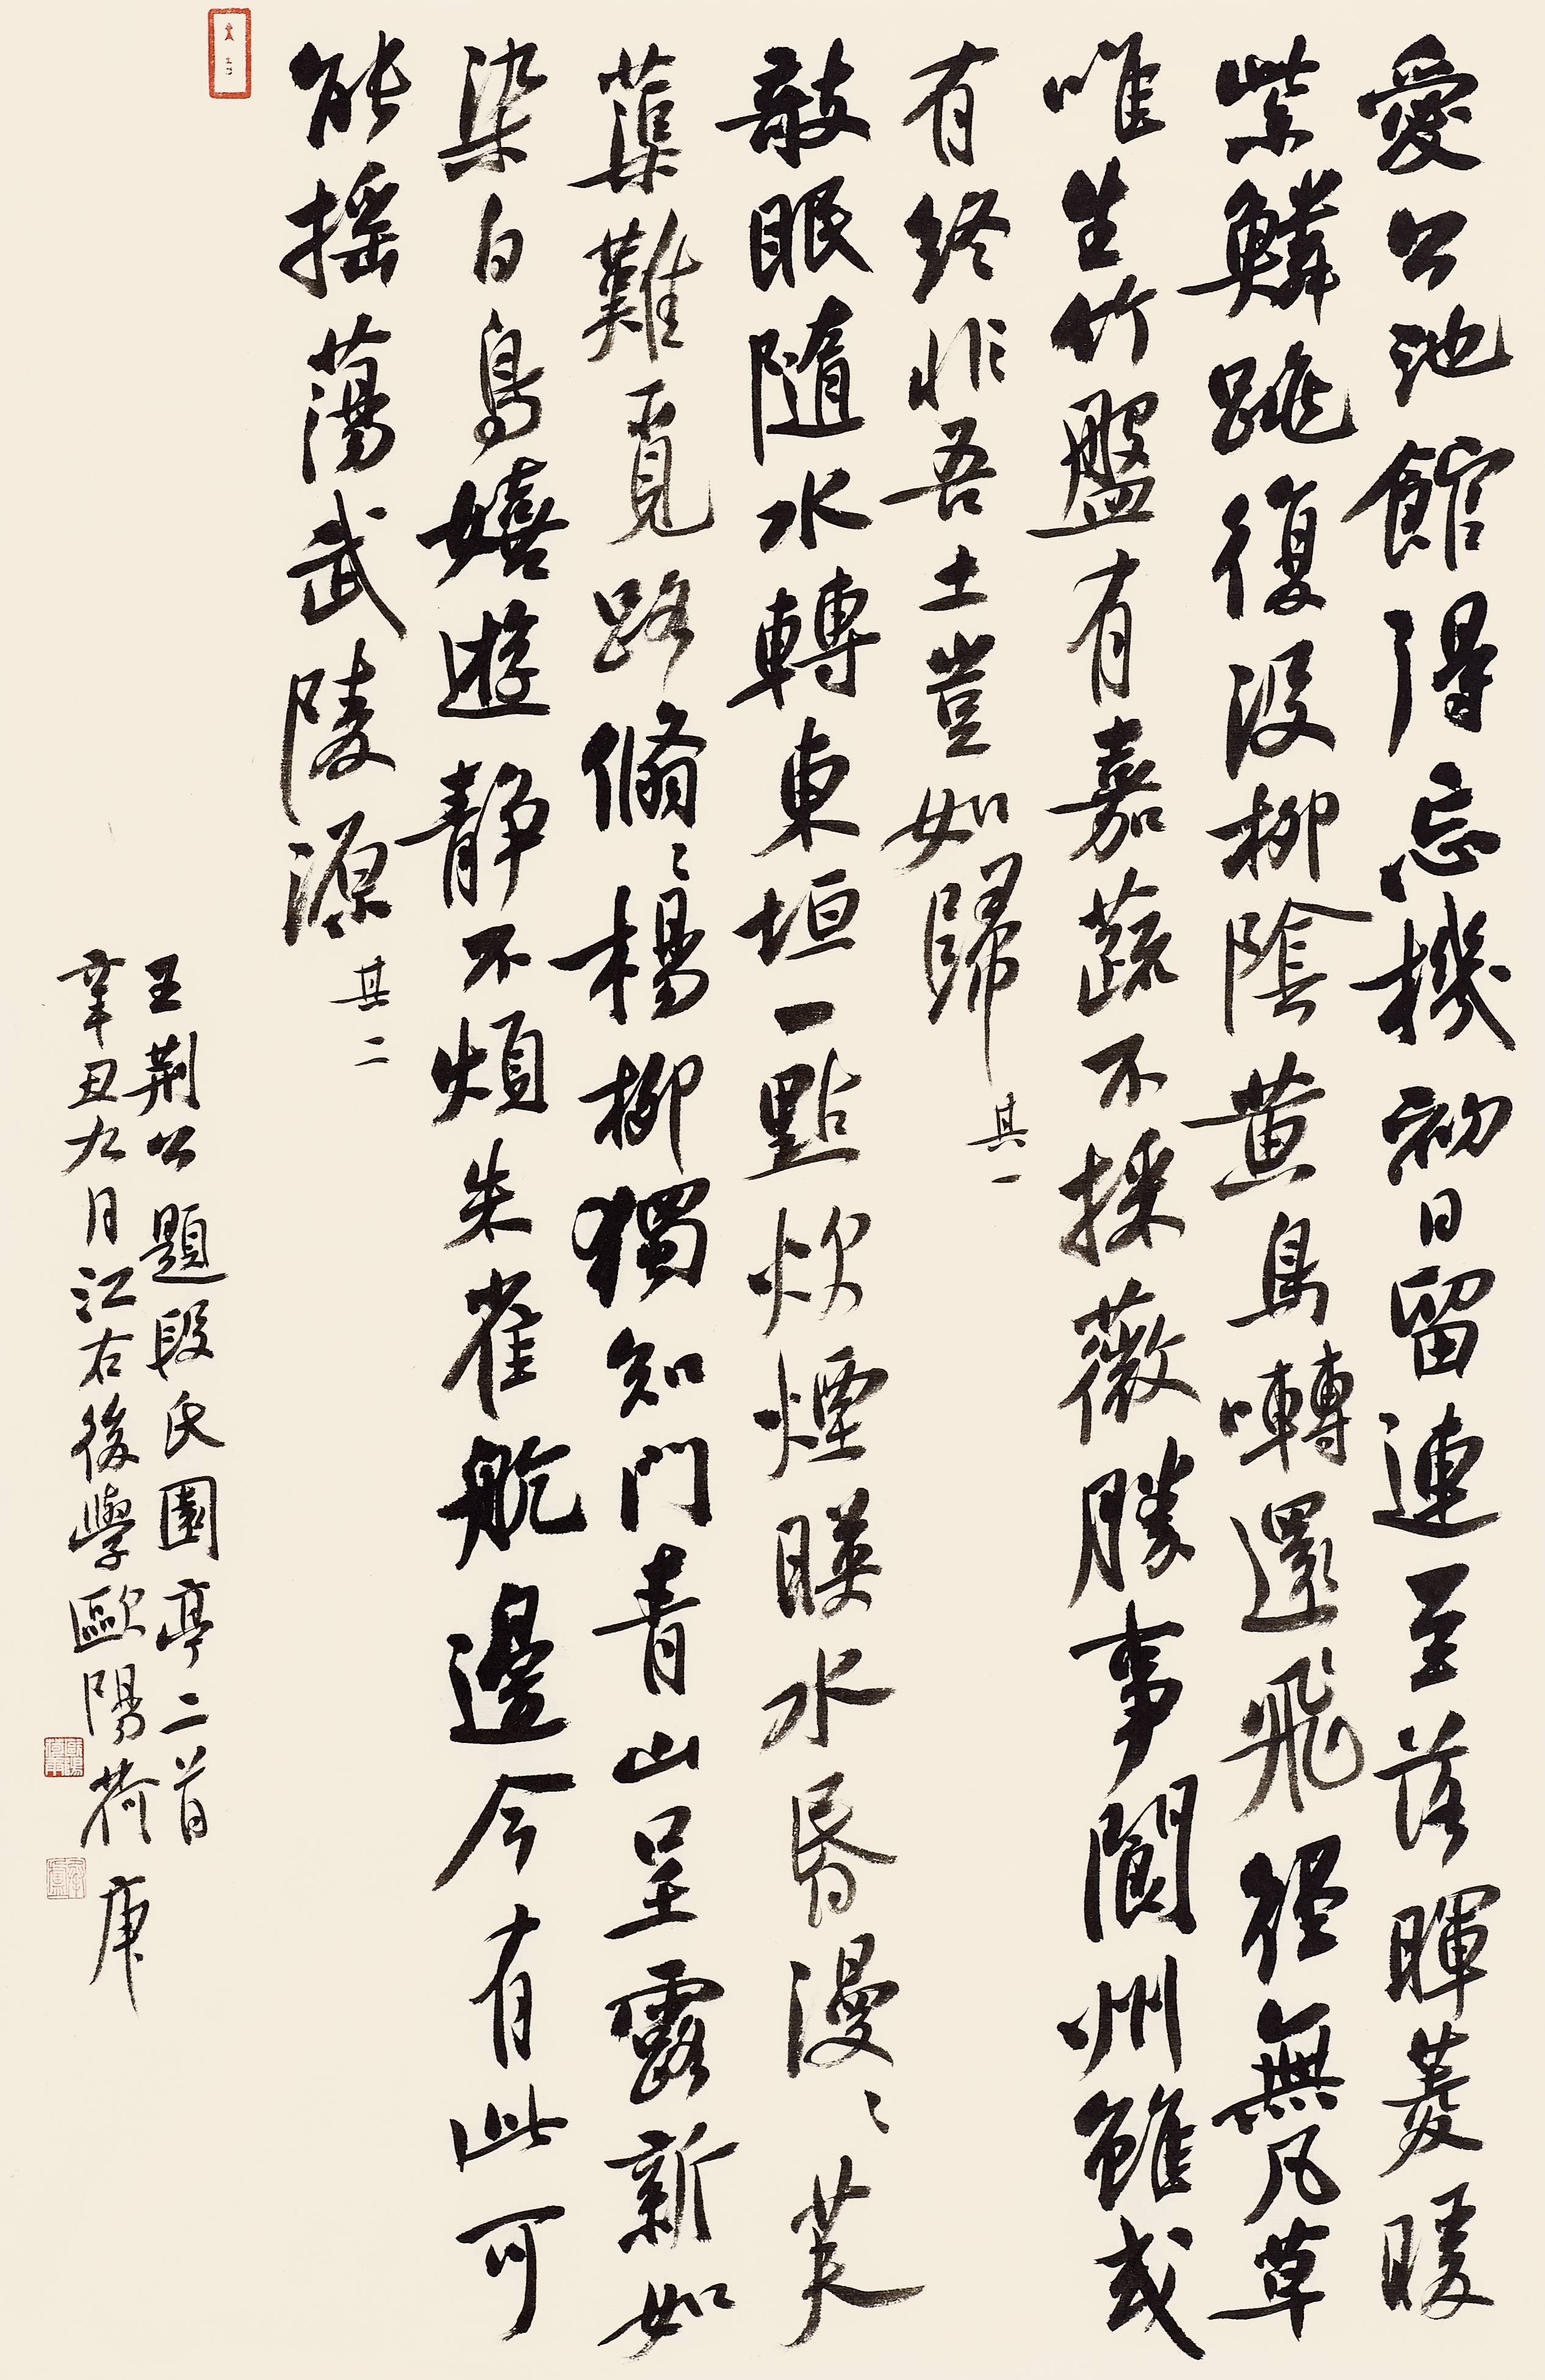 愛公池館得忘機初日留連至落暉菱暖
紫鱗跳復没柳陰黄鳥囀還飛徑無凡草
唯生竹盤有嘉蔬不採薇勝事閬州雖或
有終非吾土豈如歸 其一
敧眠隨水轉東垣一點炊煙映水昏漫漫芙
蕖難覓路翛翛楊柳獨知門青山呈露新如
染白鳥嬉遊静不煩朱雀航邊今有此可
能摇蕩武陵源 其二
王荆公題段氏園亭二首
辛丑九月江右後學歐陽荷庚